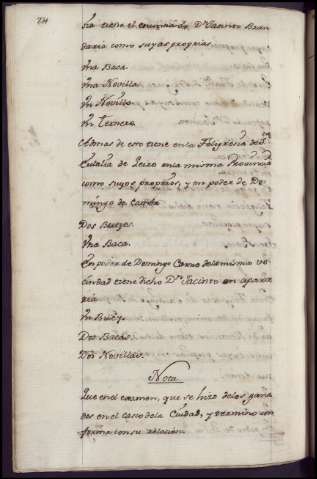 24
ha tiene el Dn Jacinto Baan
daria como suyas proprias
Una Baca
Una Novilla
Un Novillo
Un Ternero
Ademas de esto tiene en la Felegresia de Sta
Eulalia de en la misma Provincia
como suyos proprios, y en poder de Do-
mingo de
Dos Bueyes.
Una Baca.
En poder de Domingo de la misma ve-
cindad tiene dicho Dn Jacinto en aparze
ria
Un Buey.
Dos Bacas.
Dos Novillas.
Nota
Que en el examen, que se hizo de los gana
dos en el casco de la Ciudad, y termino con
forma con su relacion.